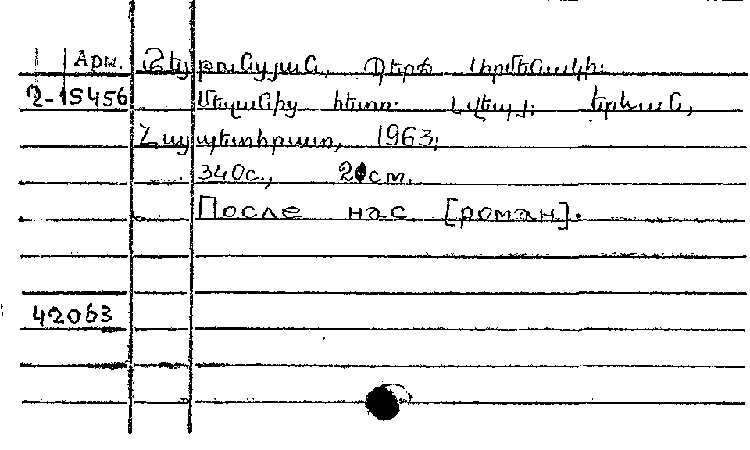 Арм. Զեյթունցյան, Պերճ Արմենակի:
2-15456 Մեզանից հետո: Նվեպ: Երևան,
Հայպետհրատ, 1963:
340с., 20см.
После нас [роман].
42063